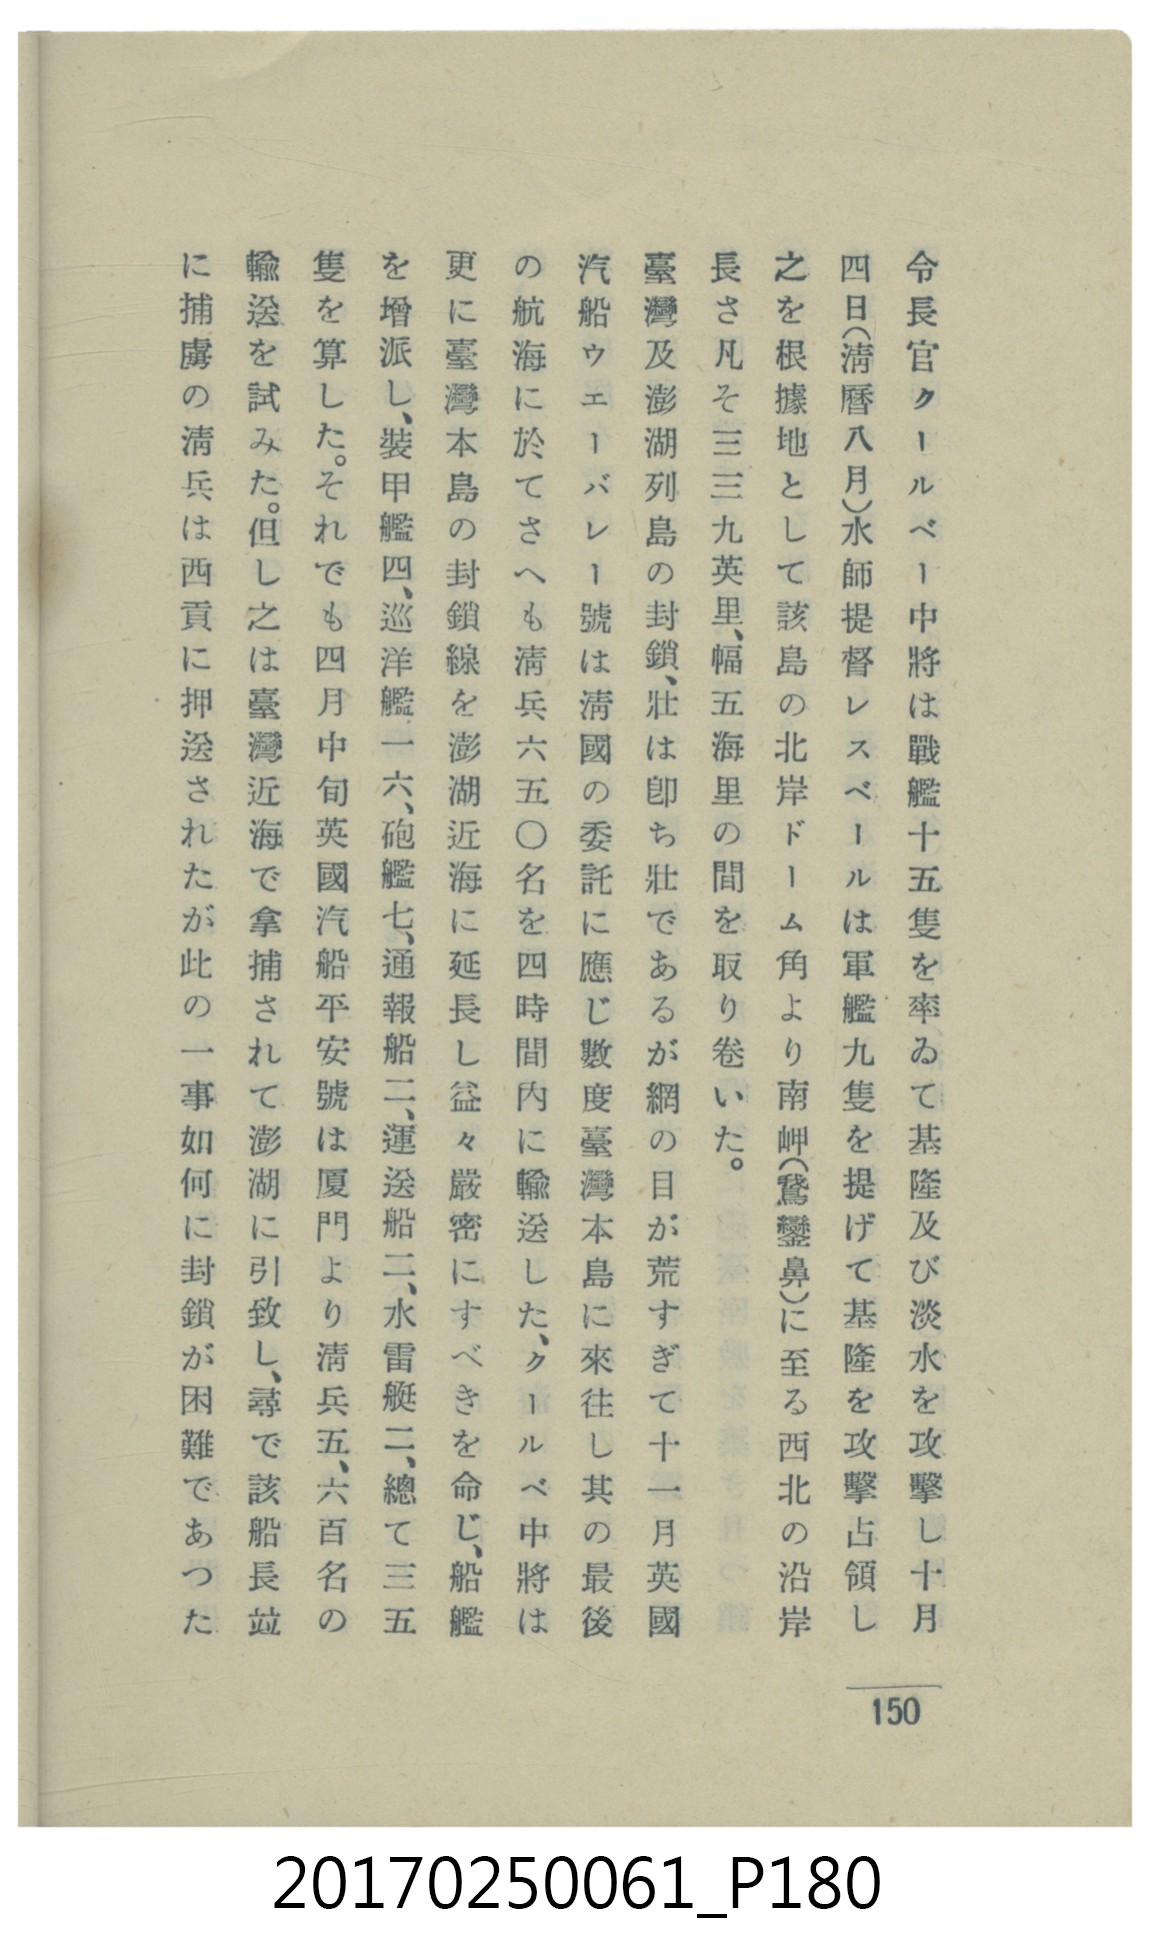 令長官クールベー中將は戰艦十五隻を率ゐて基隆及び淡水を攻擊し十月
四日(淸曆八月)水師提督レスベールは軍艦九隻を提げて基隆を攻擊占領し
之を根據地として該島の北岸ドーム角より南岬(鵞鑾鼻)に至る西北の沿岸
長さ凡そ三三九英里、幅五海里の間を取り卷いた。
臺灣及澎湖列島の封鎖、壯は卽ち壯であるが網の目が荒すぎて十一月英國
汽船ウエーバレー號は淸國の委託に應じ數度臺灣本島に來往し其の最後
の航海に於てさへも淸兵六五〇名を四時間內に輸送した、クールベ中將は
更に臺灣本島の封鎖線を澎湖近海に延長し益々嚴密にすべきを命じ、船艦
を增派し、裝甲艦四、巡洋艦一六、砲艦七、通報船二、運送船二、水雷艇二、總て三五
隻を算した。それでも四月中旬英國汽船平安號は厦門より淸兵五、六百名の
輸送を試みた。但し之は臺灣近海で拿捕されて澎湖に引致し、尋で該船長竝
に捕虜の淸兵は西貢に押送されたが此の一事如何に封鎖が困難であつた
150
20170250061_P180